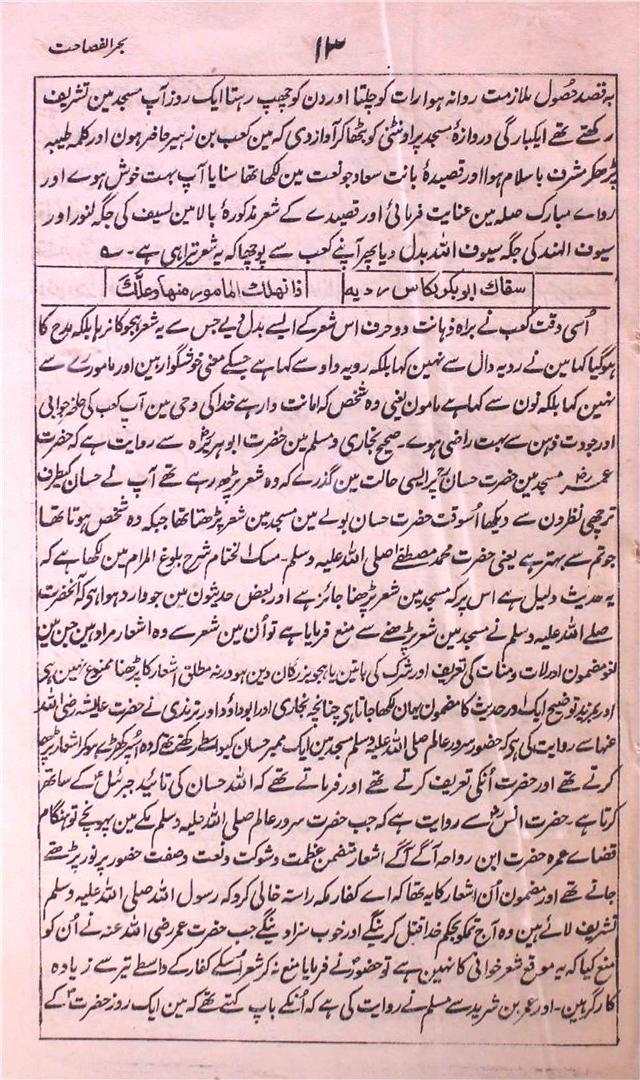 بحر الفصاحت
۱۳
بہ قصد حصول ملازمت روانہ ہوا رات کو چلتا اور دن کو چھپ رہتا ایک روز آپ مسجد مین تشریف
رکھتے تھے ایکبارگی دروازۂ مسجد پر اونٹنی کو بٹھا کر آواز دی کہ مین کعب بن زہیر حاضر ہون اور کلمۂ طیبہ
پڑھکر مشرف باسلام ہوا اور قصیدۂ بانت سعاد جو نعت مین لکھا تھا سنایا آپ بہت خوش ہوے اور
رداے مبارک صلہ مین عنایت فرمائی اور قصیدے کے شعر مذکورۂ بالا مین لسیف کی جگہ لنور اور
سیوف الہند کی جگہ سیوف اللہ بدل دیا پھر آپنے کعب سے پوچھا کہ یہ شعر تیرا ہی ہے۔ ؎
سقاك ابوبکر بکاس ردیه
فانهلك المامور منها وعلك
اُسی وقت کعب نے براہ ذہانت دو حرف اس شعر کے ایسے بدل دیے جس سے یہ شعر ہجو کا نرہا بلکہ مدح کا
ہو گیا کہا مین نے ردیہ دال سے نہین کہا بلکہ رویہ واو سے کہا ہے جسکے معنی خوشگوار ہین اور مامور رے سے
نہین کہا بلکہ نون سے کہا ہے مامون یعنی وہ شخص کہ امانت دار ہے خدا کی وحی مین آپ کعب کی حاضر جوابی
اور جودت ذہن سے بہت راضی ہوے۔ صحیح بخاری و مسلم مین حضرت ابوہریرہؓ سے روایت ہے کہ حضرت
عمرؓ مسجد مین حضرت حسانؓ پر ایسی حالت مین گذرے کہ وہ شعر پڑھ رہے تھے آپ نے حسان کیطرف
ترچھی نظرون سے دیکھا اُسوقت حضرت حسان بولے مین مسجد مین شعر پڑھتا تھا جبکہ وہ شخص ہوتا تھا
جو تم سے بہتر ہے یعنی حضرت محمد مصطفے صلی اللہ علیہ وسلم۔ مسک الختام شرح بلوغ المرام مین لکھا ہے کہ
یہ حدیث دلیل ہے اس پر کہ مسجد مین شعر پڑھنا جائز ہے اور بعض حدیثون مین جو وارد ہوا ہی کہ آنحضرت
صلے اللہ علیہ وسلم نے مسجد مین شعر پڑھنے سے منع فرمایا ہے تو اُن مین شعر سے وہ اشعار مراد ہین جن مین
لغو مضمون اور لات و منات کی تعریف اور شرک کی باتین یا ہجو بزرگان دین ہو ورنہ مطلق اشعار کا پڑھنا ممنوع نہین ہی
اور بمزید توضیح ایک اور حدیث کا مضمون یہان لکھا جاتا ہی چنانچہ بخاری اور ابوداؤد اور ترمذی نے حضرت عایشہ رضی اللہ
عنہا سے روایت کی ہی کہ حضور سرور عالم صلی اللہ علیہ وسلم مسجد مین ایک ممبر حسان کیواسطے رکھتے تھے کہ وہ اُسپر کھڑے ہو کر اشعار پڑھا
کرتے تھے اور حضرت اُنکی تعریف کرتے تھے اور فرماتے تھے کہ اللہ حسان کی تائید جبرئیلؑ کے ساتھ
کرتا ہے۔ حضرت انسؓ سے روایت ہے کہ جب حضرت سرور عالم صلی اللہ علیہ وسلم مکے مین پہونچے تو ہنگام
قضاے عمرہ حضرت ابن رواحہ آگے آگے اشعار متضمن عظمت و شوکت و نعت و صفت حضور پر نور پڑھتے
جاتے تھے اور مضمون اُن اشعار کا یہ تھا کہ اے کفار مکہ راستہ خالی کرو کہ رسول اللہ صلی اللہ علیہ وسلم
تشریف لائے ہین وہ آج تمکو بحکم خدا قتل کرینگے اور خوب سزا دینگے جب حضرت عمر رضی اللہ عنہ نے اُن کو
منع کیا کہ یہ موقع شعر خوانی کا نہین ہے تو حضورؐ نے فرمایا منع نہ کر شعر اُسکے کفار کے واسطے تیر سے زیادہ
کارگر ہین۔ اور عمر بن شرید سے مسلم نے روایت کی ہے کہ اُنکے باپ کہتے تھے کہ مین ایک روز حضرتؐ کے